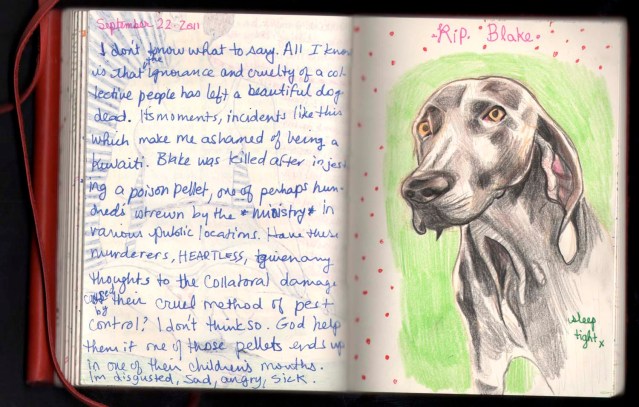 September 22-2011
I don't know what to say. All I know
is that the ignorance and cruelty of a col-
lective people has left a beautiful dog
dead. Its moments, incidents like this
which make me ashamed of being a
Kuwaiti. Blake was killed after injest-
ing a poison pellet, one of perhaps hun-
dreds strewn by the *ministry* in
various public locations. Have these
murderers, HEARTLESS, given any
thoughts to the collatoral damage
caused by their cruel method of pest
control? I don't think so. God help
them if one of those pellets ends up
in one of their children's mouths.
I'm disgusted, sad, angry, sick.
R.i.p. Blake.
sleep
tight x